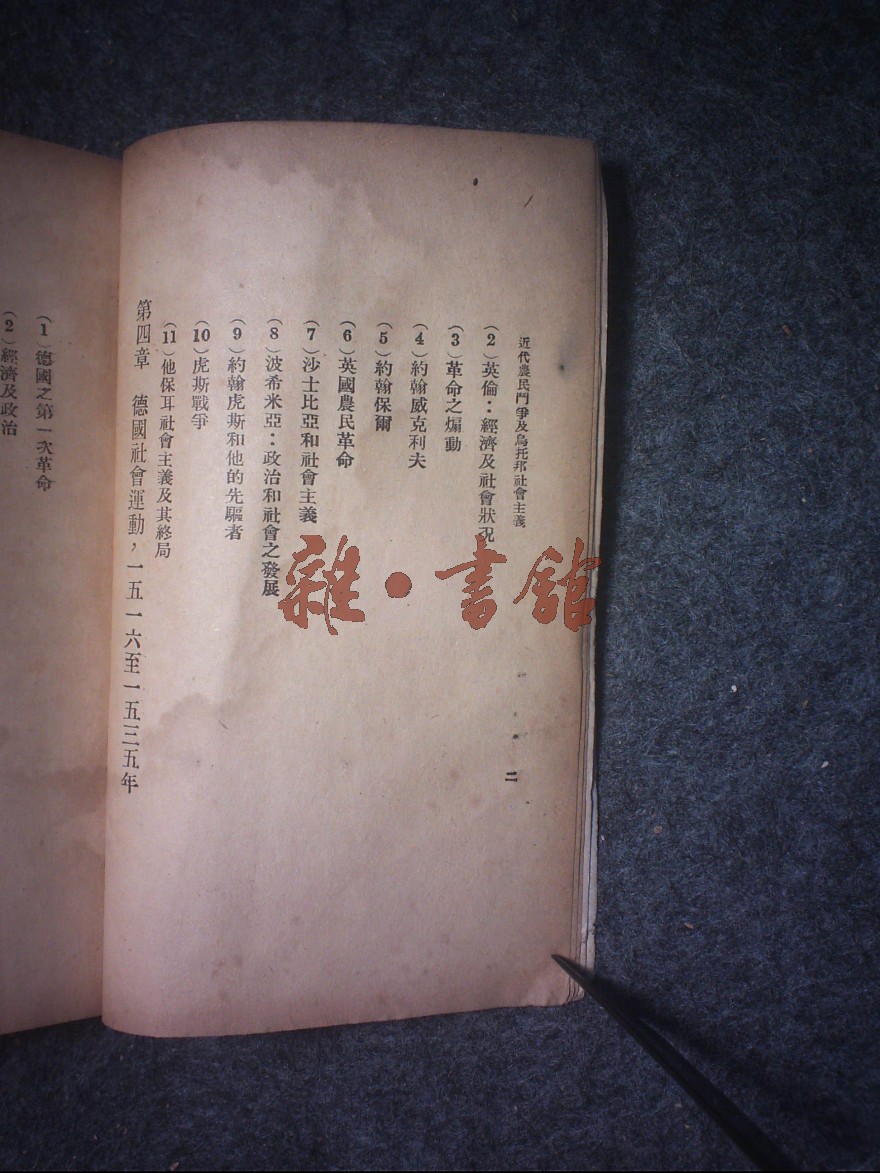 近代農民鬥爭及烏托邦社會主義
二
（2）英倫：經濟及社會狀況
（3）革命之煽動
（4）約翰威克利夫
（5）約翰保爾
（6）英國農民革命
（7）沙士比亞和社會主義
（8）波希米亞：政治和社會之發展
（9）約翰虎斯和他的先驅者
（10）虎斯戰爭
（11）他保耳社會主義及其終局
第四章　德國社會運動，一五一六至一五三五年
（1）德國之第一次革命
（2）經濟及政治
雜·書館